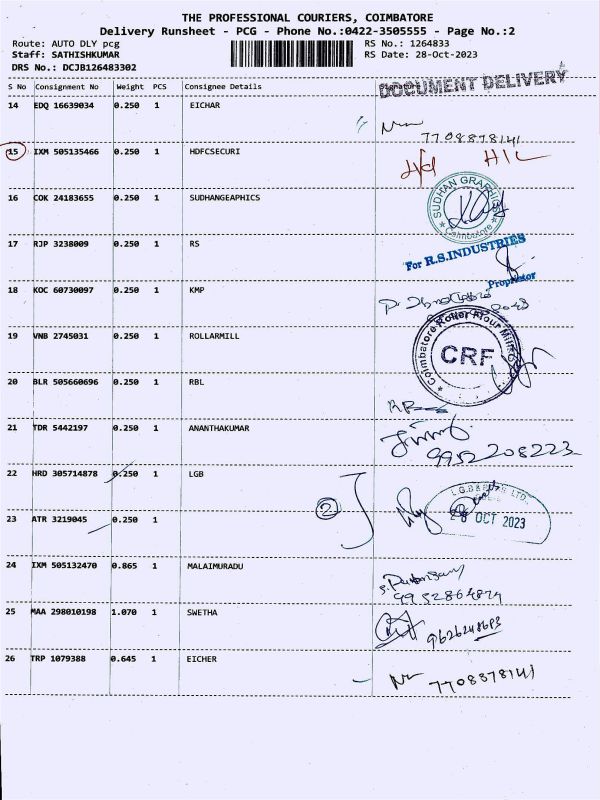 THE PROFESSIONAL COURIERS, COIMBATORE
Delivery Runsheet - PCG - Phone No.:0422-3505555 - Page No.:2
Route: AUTO DLY pcg RS No.: 1264833
Staff: SATHISHKUMAR RS Date: 28-Oct-2023
DRS No.: DCJB126483302
S No Consignment No Weight PCS Consignee Details
DOCUMENT DELIVERY
14 EDQ 16639034 0.250 1 EICHAR
7708878141
15 IXM 505135466 0.250 1 HDFCSECURI
H/d HIL
16 COK 24183655 0.250 1 SUDHANGEAPHICS
SUDHAN GRAPHICS
Coimbatore
17 RJP 3238009 0.250 1 RS
For R.S.INDUSTRIES
Proprietor
18 KOC 60730097 0.250 1 KMP
19 VNB 2745031 0.250 1 ROLLARMILL
Coimbatore Roller Flour Mills
CRF
20 BLR 505660696 0.250 1 RBL
21 TDR 5442197 0.250 1 ANANTHAKUMAR
9952208223
22 HRD 305714878 0.250 1 LGB
2
23 ATR 3219045 0.250 1
OCT 2023
24 IXM 505132470 0.865 1 MALAIMURADU
9952864874
25 MAA 298010198 1.070 1 SWETHA
9626248693
26 TRP 1079388 0.645 1 EICHER
7708878141